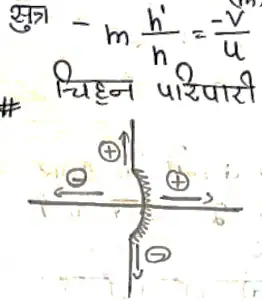 सुत्र - m h'/h = -v/u
चिह्न परिपारी
#
⊕
⊖ ⊕
⊖